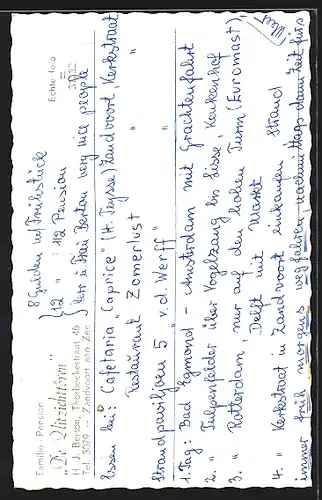 Familie Pension
"De Uitzichttoren"
H. J. Berton, Thorbeckestraat 46
Tel. 3079 -- Zandvoort aan Zee
Echte foto
8 Gulden m/ Frühstück
12 " : 1/2 Pension
Herr u Frau Berton very nice people
Essen bei: Cafetaria "Caprice" (H. Teysse) Zandvoort, Kerkstraat
Restaurant Zomerlust "
Strandpaviljoen 5 "v.d. Werff" "
1. Tag: Bad Egmond - Amsterdam mit Grachtenfahrt
2. " Tulpenfelder über Vogelzang bis Lisse, Keukenhof
3. " Rotterdam, nur auf den hohen Turm (Euromast)
Delft mit Markt
4. " Kerkstraat in Zandvoort einkaufen Strand
immer früh morgens wegfahren, nachmittags dann Zeit fürs
Meer